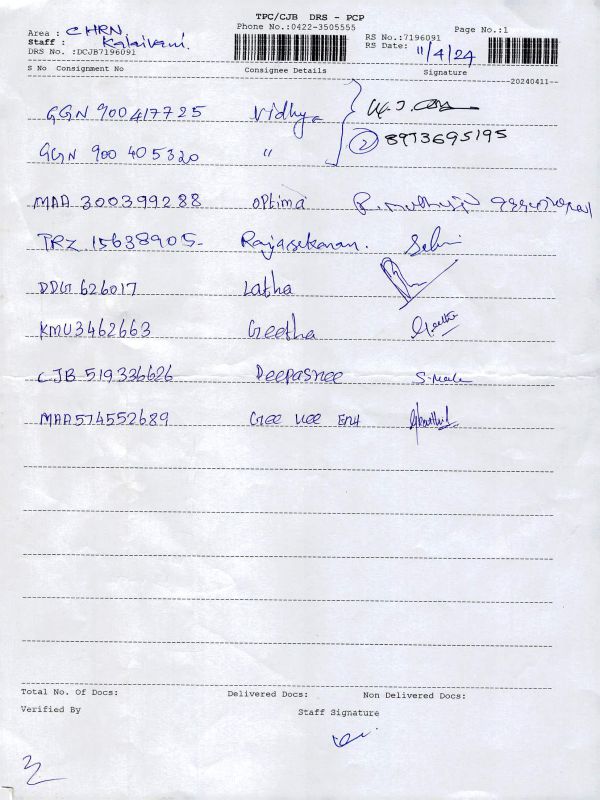 TPC/CJB DRS - PCP
Phone No.:0422-3505555
Page No.:1
Area : CHRN
Staff : Kalaivani.
DRS No. :DCJB7196091
RS No.:7196091
RS Date: 11/4/24
S No Consignment No Consignee Details Signature
--20240411--
GGN 900417725 Vidhya
② 8973695195
GGN 900 405320 "
MAA 300399288 optima
TRZ 15638905- Rajasekaran. Selvi
DDG 626017 Latha
KMU3462663 Geetha Geetha
CJB 519336626 Deepasree
MAA574552689 Gee Vee Ent
Total No. Of Docs: Delivered Docs: Non Delivered Docs:
Verified By Staff Signature